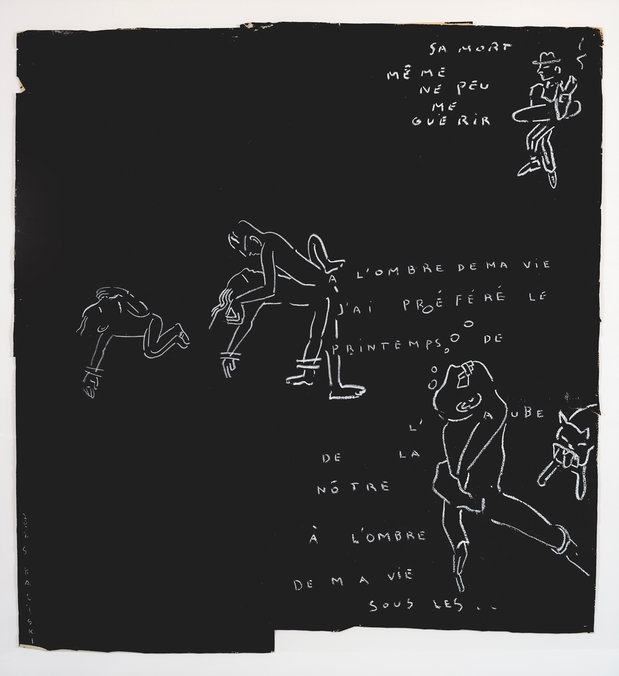 SA MORT
MÊME
NE PEU
ME
GUÉRIR
À L'OMBRE DE MA VIE
J'AI PRÉFÉRÉ LE
PRINTEMPS DE
L'AUBE
DE LA
NÔTRE
À L'OMBRE
DE MA VIE
SOUS LES..